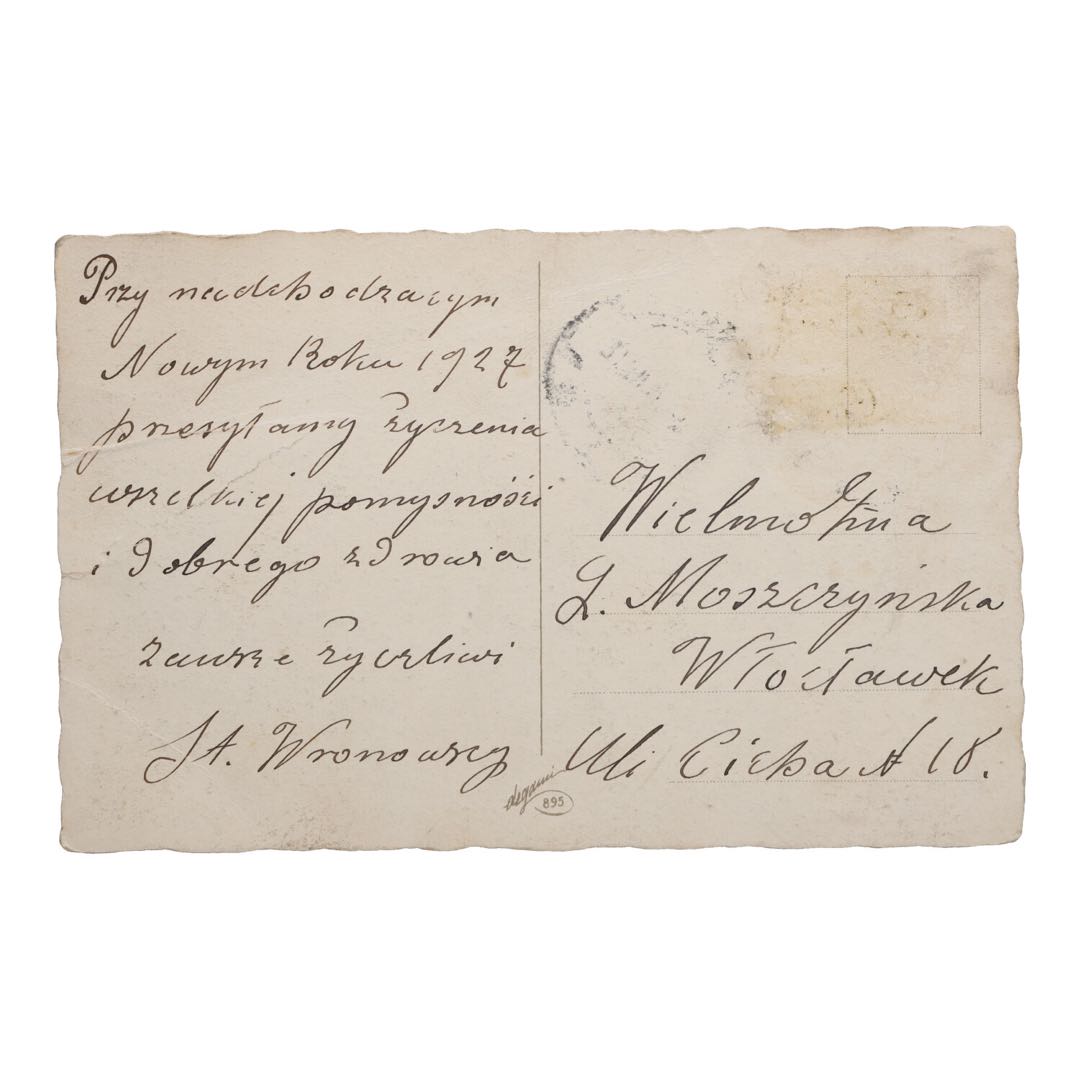 Przy nadchodzącym
Nowym Roku 1927
przesyłamy życzenia
wszelkiej pomysności
i dobrego zdrowia
zawsze życzliwi
St. Wronowscy
Wielmożna
L. Moszczyńska
Włocławek
Uli Cicha № 18.
895